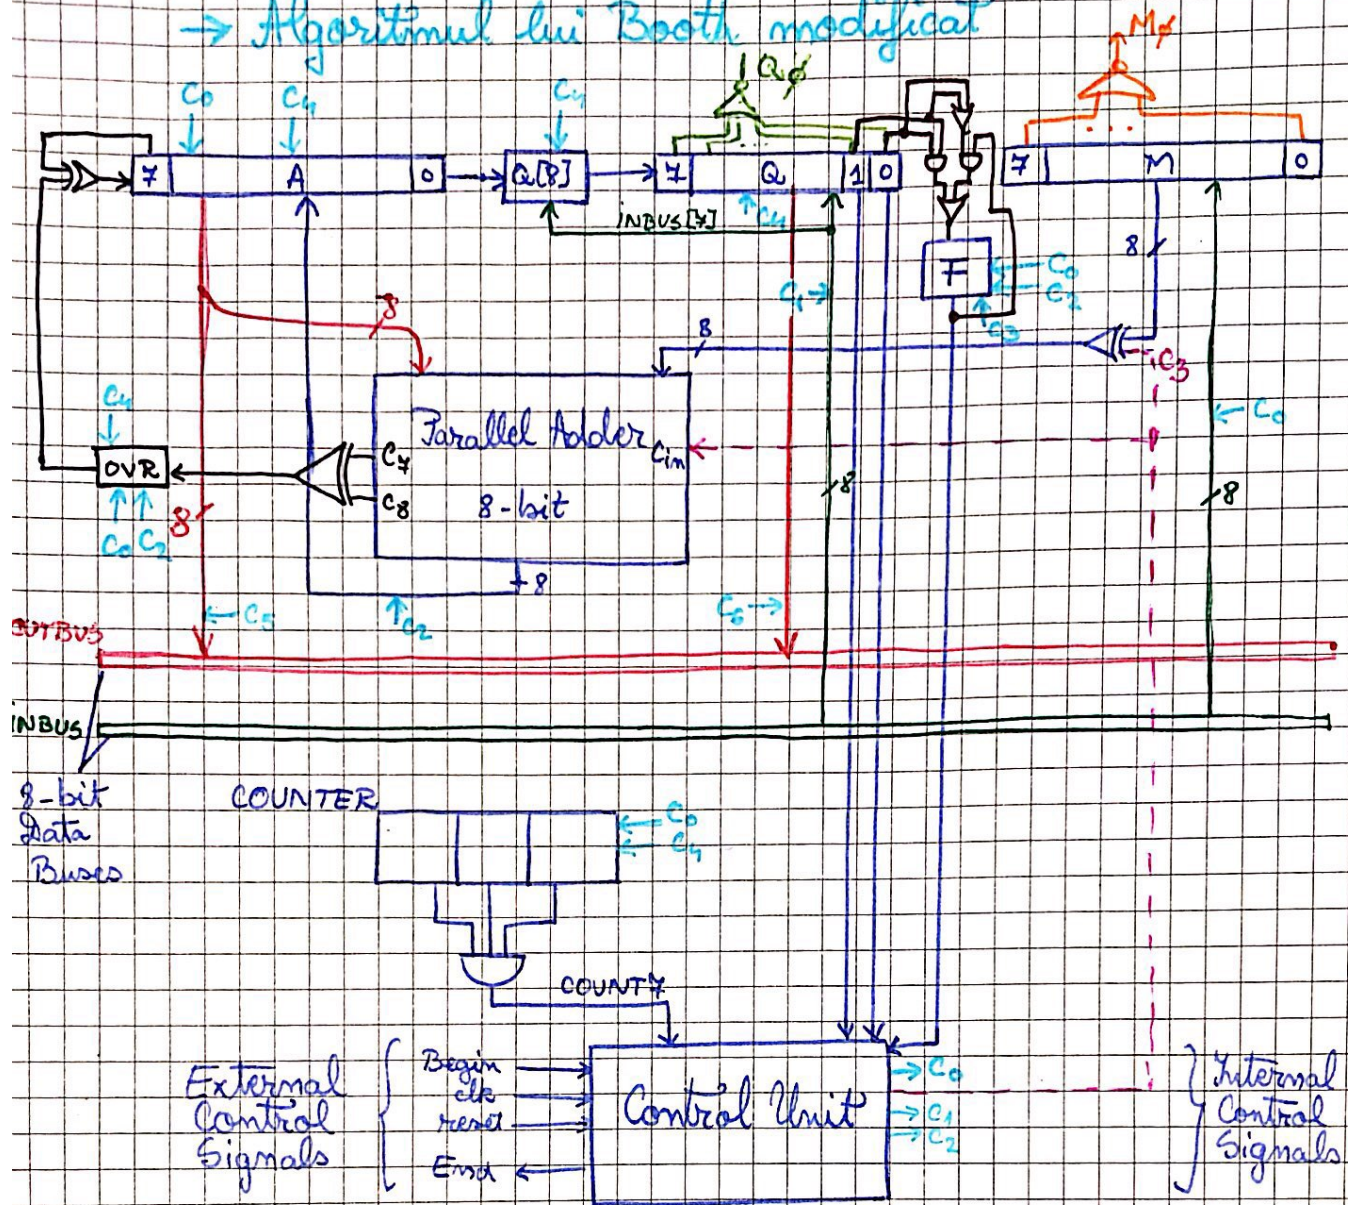 → Algoritmul lui Booth modificat
Mφ
Qφ
C0 C4 C4
7 A 0 Q[8] 7 Q 1 0 7 M 0
INBUS[7] C4
8
F C0
C2
C1
C3
8
8
C3
C4
C0
Parallel Adder
Cin
C7
OVR
8
8-bit
8
C8
C0 C2 8
8
C5
C2
C6
OUTBUS
INBUS
8-bit
Data
Buses
COUNTER
C0
C4
COUNT7
External
Control
Signals
Begin
clk
reset
End
Control Unit
C0
C1
C2
Internal
Control
Signals